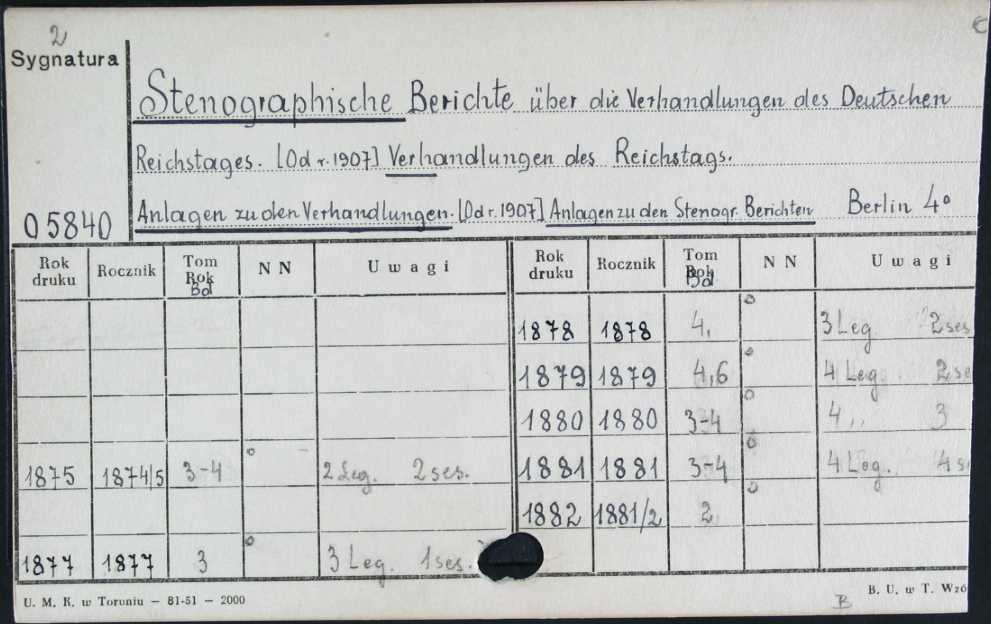 2
Sygnatura
C
Stenographische Berichte über die Verhandlungen des Deutschen
Reichstages. [Od r. 1907] Verhandlungen des Reichstags.
05840
Anlagen zu den Verhandlungen. [Od r. 1907] Anlagen zu den Stenogr. Berichten Berlin 4°
Rok druku Rocznik Tom Rok Bd NN Uwagi Rok druku Rocznik Tom Rok Bd NN Uwagi
1878 1878 4, 3 Leg 2 ses
1879 1879 4,6 4 Leg. 2 se
1880 1880 3-4 4 ,, 3
1875 1874/5 3-4 2 Leg. 2 ses. 1881 1881 3-4 4 Leg. 4 s
1882 1881/2 2
1877 1877 3 3 Leg. 1 ses.
U. M. K. w Toruniu — 81-51 — 2000
B
B. U. w T. Wzó